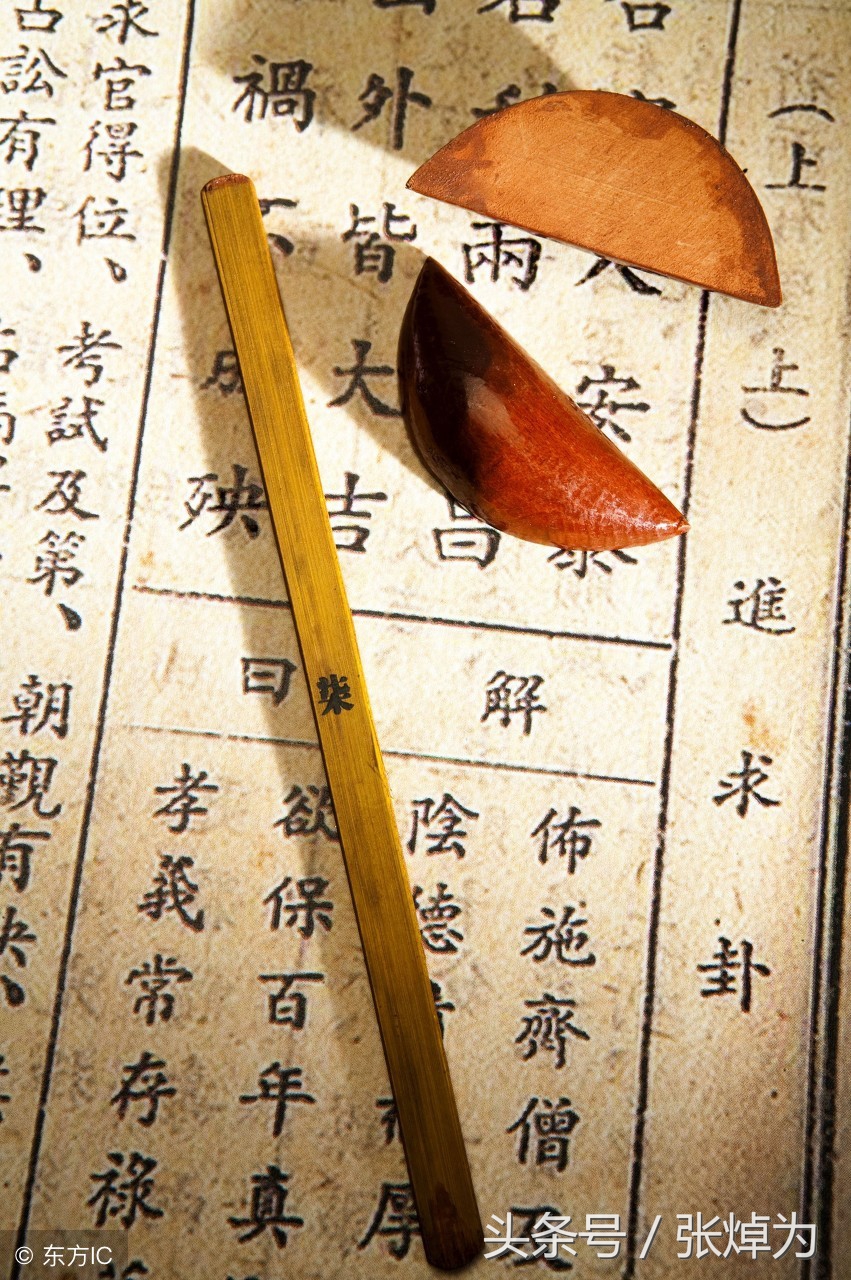 （上上）進求卦
人安泰
兩昌
外皆大吉
禍不殃
解曰
佈施齋僧及
陰德厚
欲保百年真
孝義常存祿
求官得位、考試及第、朝覲有
占訟有理、
柒
© 东方IC
头条号 / 张焯为